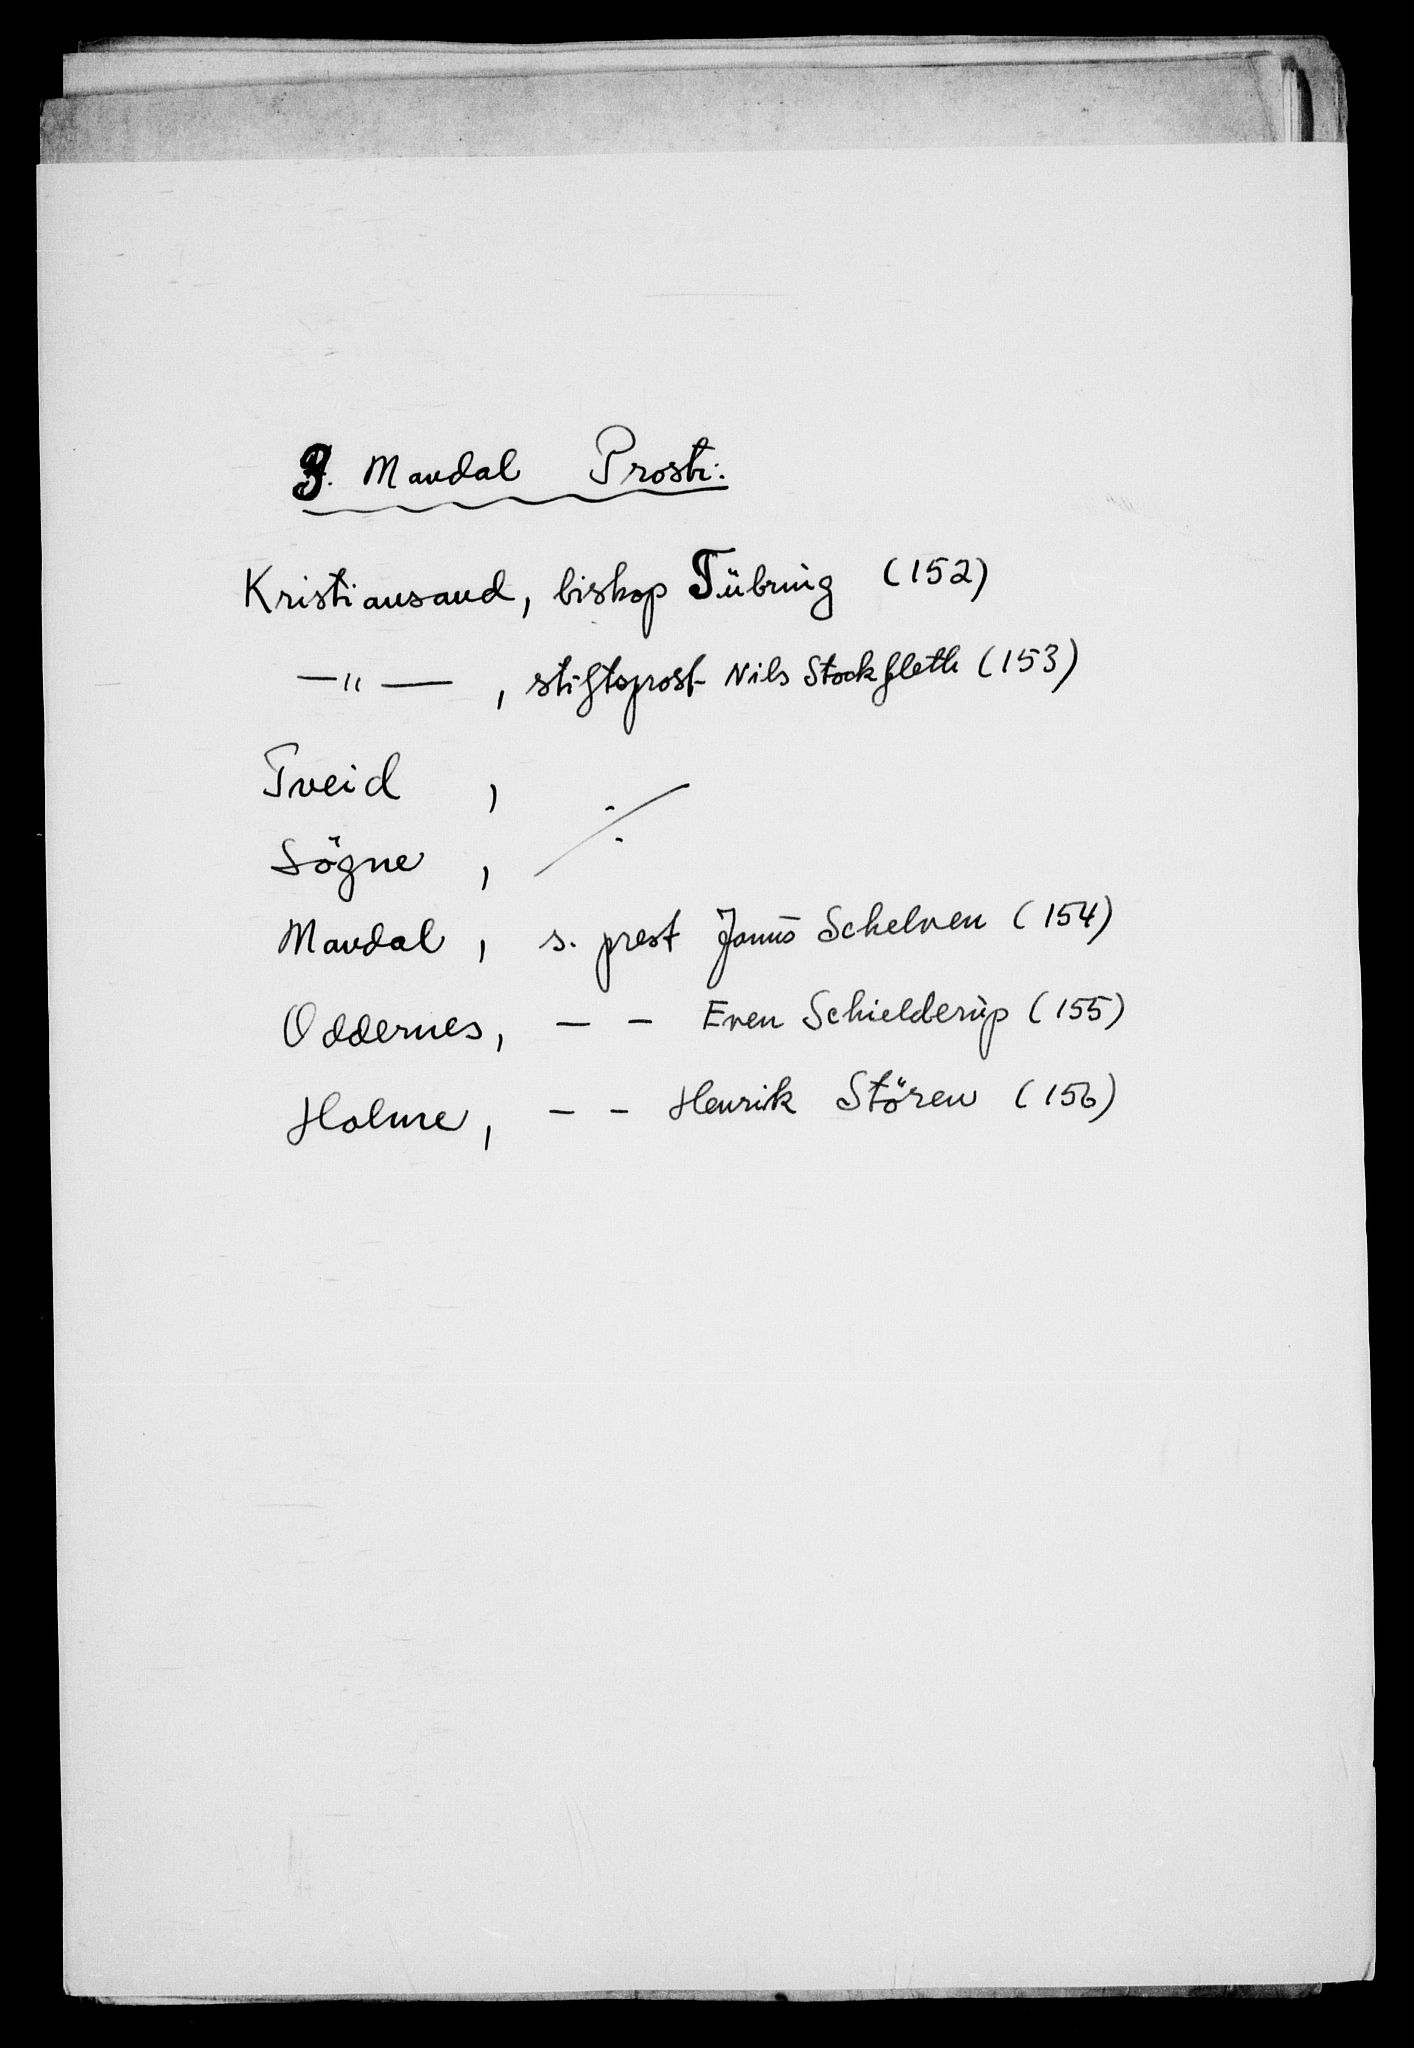 3. Mandal Prosti:
Kristiansand, biskop Tübring (152)
—"— , stiftsprost Nils Stockfleth (153)
Tveid ,
Sögne , ⁒
Mandal , s. prest Janus Schelven (154)
Oddernes, – – Even Schielderup (155)
Holme, – – Henrik Stören (156)